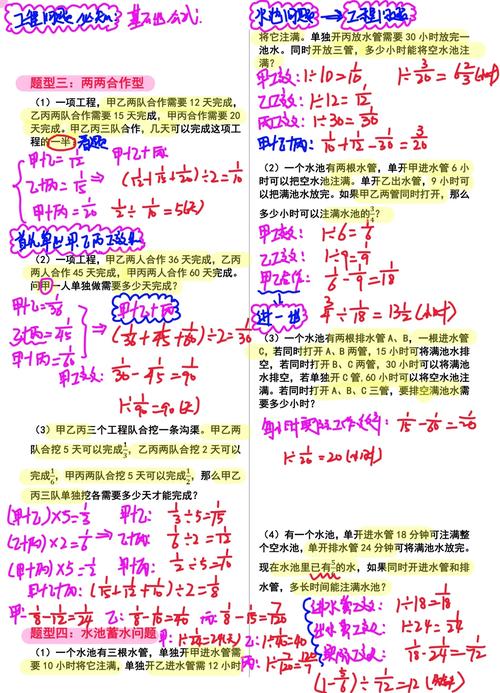 题型三：两两合作型
（1）一项工程，甲乙两队合作需要 12 天完成，
乙丙两队合作需要 15 天完成，甲丙合作需要 20
天完成。甲乙丙三队合作，几天可以完成这项工
程的一半？ 看题
甲+乙=1/12 甲+乙+丙:
乙+丙=1/15 (1/12+1/15+1/20)÷2=1/10
甲+丙=1/20 1/2÷1/10=5(天)
（2）一项工程，甲乙两人合作 36 天完成，乙丙
两人合作 45 天完成，甲丙两人合作 60 天完成。
问甲一人单独做需要多少天完成？
甲+乙=1/36 甲+乙+丙
乙+丙=1/45 (1/36+1/45+1/60)÷2=1/30
甲+丙=1/60
甲工效: 1/30-1/45=1/90
1÷1/90=90(天)
（3）甲乙丙三个工程队合挖一条沟渠。甲乙两
队合挖 5 天可以完成1/3，乙丙两队合挖 2 天可以
完成1/6，甲丙两队合挖 5 天可以完成1/2，那么甲乙
丙三队单独挖各需要多少天才能完成？
(甲+乙)×5=1/3 甲+乙: 1/3÷5=1/15
(乙+丙)×2=1/6 乙+丙: 1/6÷2=1/12
(甲+丙)×5=1/2 甲+丙: 1/2÷5=1/10
甲+乙+丙: (1/15+1/12+1/10)÷2=1/8
甲: 1/8-1/12=1/24 乙: 1/8-1/10=1/40 丙: 1/8-1/15=7/120
题型四：水池蓄水问题
甲: 1÷1/24=24(天) 乙: 1÷1/40=40
（1）一个水池有三根水管，单独开甲进水管需
要 10 小时将它注满，单独开乙进水管需要 12 小时
水池问题 → 工程问题
将它注满。单独开丙放水管需要 30 小时放完一
池水。同时开放三管，多少小时能将空水池注
满？
甲工效: 1÷10=1/10 1÷3/20=6 2/3(小时)
乙工效: 1÷12=1/12
丙工效: 1÷30=1/30
甲+乙+丙: 1/10+1/12-1/30=3/20
（2）一个水池有两根水管，单开甲进水管 6 小
时可以把空水池注满。单开乙出水管，9 小时可
以把满池水放完。如果甲乙两管同时打开，那么
多少小时可以注满水池的3/4？
甲工效: 1÷6=1/6
乙工效: 1÷9=1/9
甲乙合作: 1/6-1/9=1/18
3/4÷1/18=13 1/2(小时)
进一出
（3）一个水池有两根排水管 A、B，一根进水管
C，若同时打开 A、B 两管，15 小时可将满池水排
空，若同时打开 B、C 两管，30 小时可以将满池
水排空，若单独开 C 管，60 小时可以将空水池注
满。若同时打开 A、B、C 三管，要排空满池水需
要多少小时？
1/15-1/60=1/20
1÷1/20=20(小时)
（4）有一个水池，单开进水管 18 分钟可注满整
个空水池，单开排水管 24 分钟可将满池水放完。
现在水池里已有5/6的水，如果同时开进水管和排
水管，多长时间能注满水池？
进水管工效: 1÷18=1/18
出水管工效: 1÷24=1/24
实际工效: 1/18-1/24=1/72
(1-5/6)÷1/72=12(分钟)